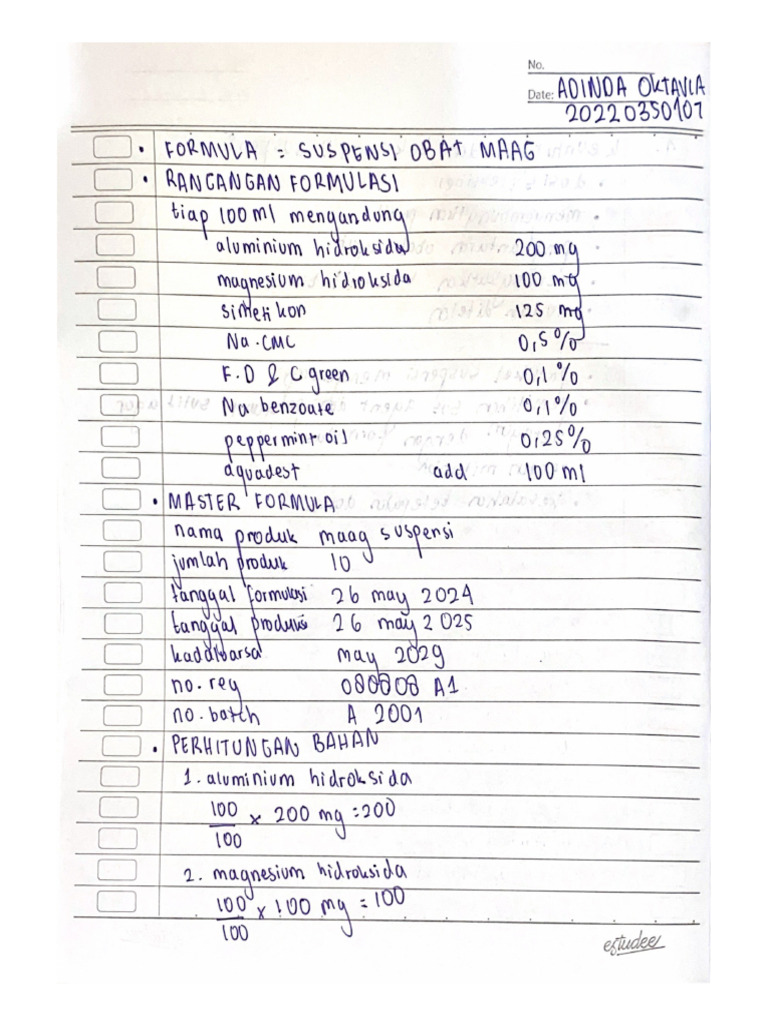 No.
Date: ADINDA OKTAVIA
20220350107
• FORMULA = SUSPENSI OBAT MAAG
• RANCANGAN FORMULASI
tiap 100 ml mengandung
aluminium hidroksida 200 mg
magnesium hidroksida 100 mg
simetikon 125 mg
Na.CMC 0,5%
F.D & C green 0,1%
Na benzoate 0,1%
peppermint oil 0,25%
aquadest add 100 ml
• MASTER FORMULA
nama produk maag suspensi
jumlah produk 10
tanggal formulasi 26 may 2024
tanggal produksi 26 may 2025
kadaluarsa may 2029
no. reg A1
no. batch A 2001
• PERHITUNGAN BAHAN
1. aluminium hidroksida
100/100 x 200 mg = 200
2. magnesium hidroksida
100/100 x 100 mg = 100
estudee